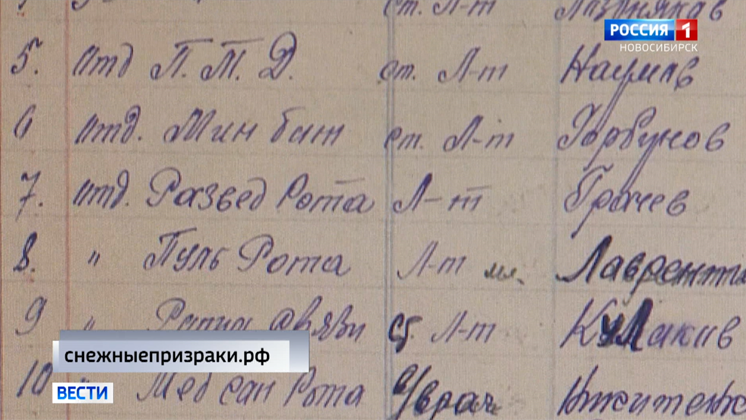 ст. Л-т
РОССИЯ 1
НОВОСИБИРСК
5. Отд П.Т.Д. ст. Л-т Наумов
6 Отд. Мин бат ст. Л-т Горбунов
7. Отд. Развед Рота Л-т Грачев
8. " Пуль Рота Л-т мл. Лаврент
9 " Рота Связи ст. Л-т Кулаков
снежныепризраки.рф
10 " Мед сан Рота в/врач
ВЕСТИ